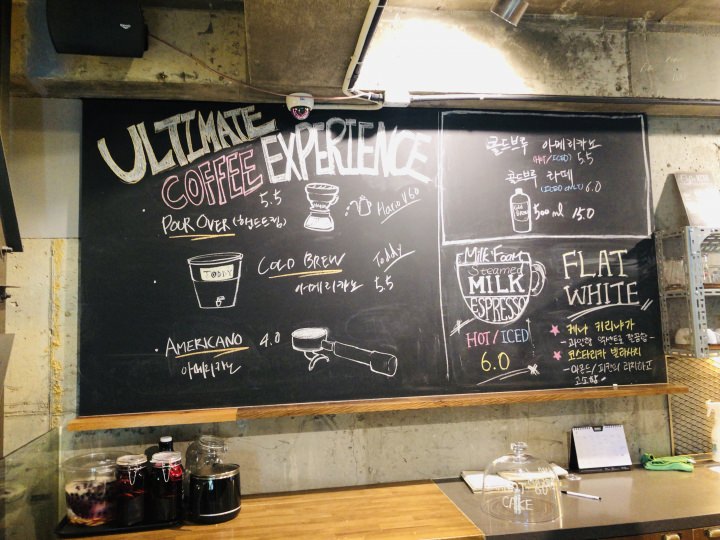 ULTIMATE
COFFEE EXPERIENCE
5.5
POUR OVER (핸드드립)
Hario V60
COLD BREW
Toddy
아메리카노 5.5
TODDY
AMERICANO 4.0
아메리카노
콜드브루 아메리카노
(HOT/ICED) 5.5
콜드브루 라떼
(ICED ONLY) 6.0
500ml 15.0
Milk Foam
Steamed
MILK
ESPRESSO
HOT/ICED
6.0
FLAT
WHITE
케냐 키리냐가
코스타리카
아몬드/피칸의 리치하고
고소함
CAKE